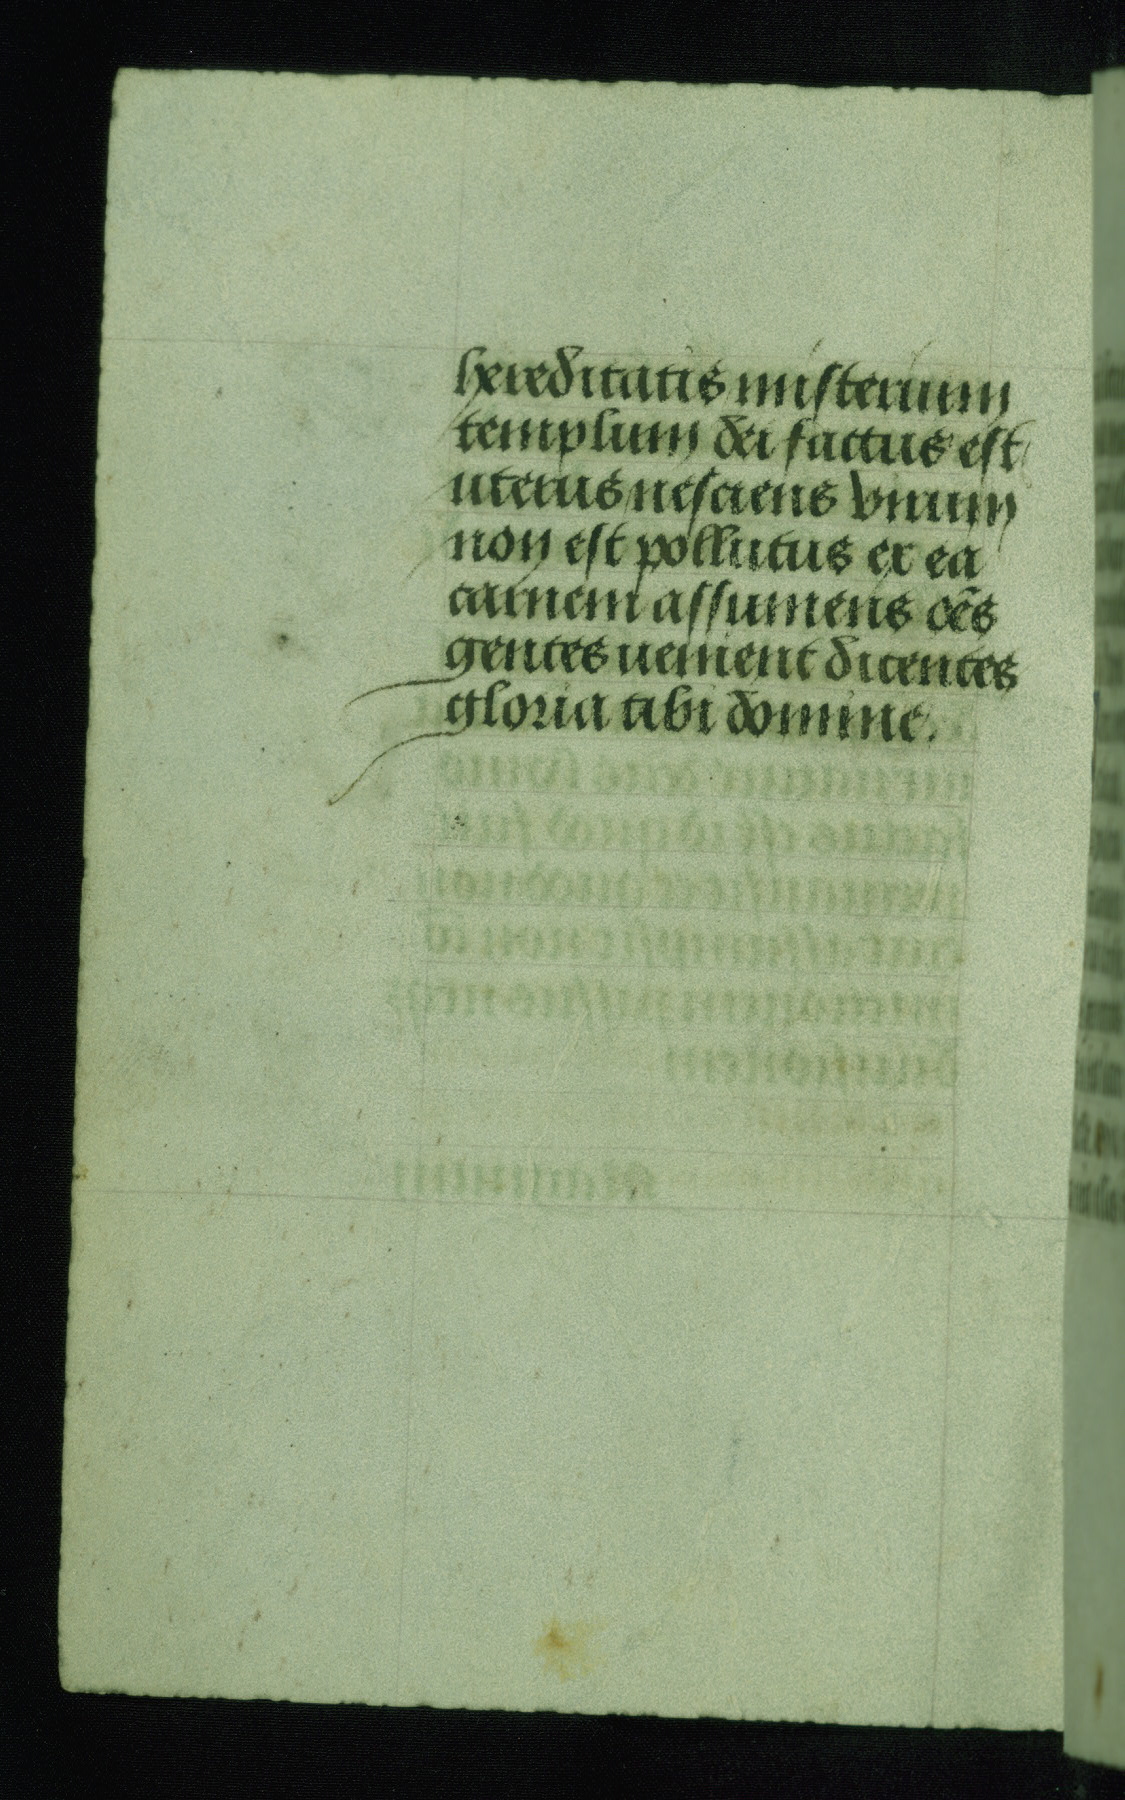 hereditatis misterium
templum dei factus est
uterus nesciens virum
non est pollutus ex ea
carnem assumens oēs
gentes uenient dicentes
gloria tibi domine.